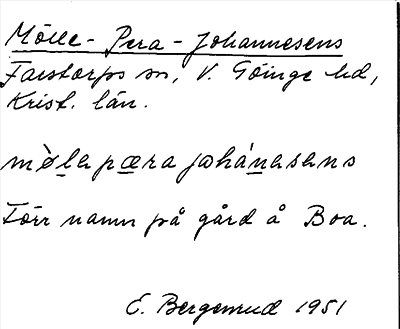 Mölle-Pera-Johannesens
Farstorps sn, V. Göinge hd,
Krist. län.
mø̀lapæra johánasans
Förr namn på gård å Boa.
E. Bergenrud 1951